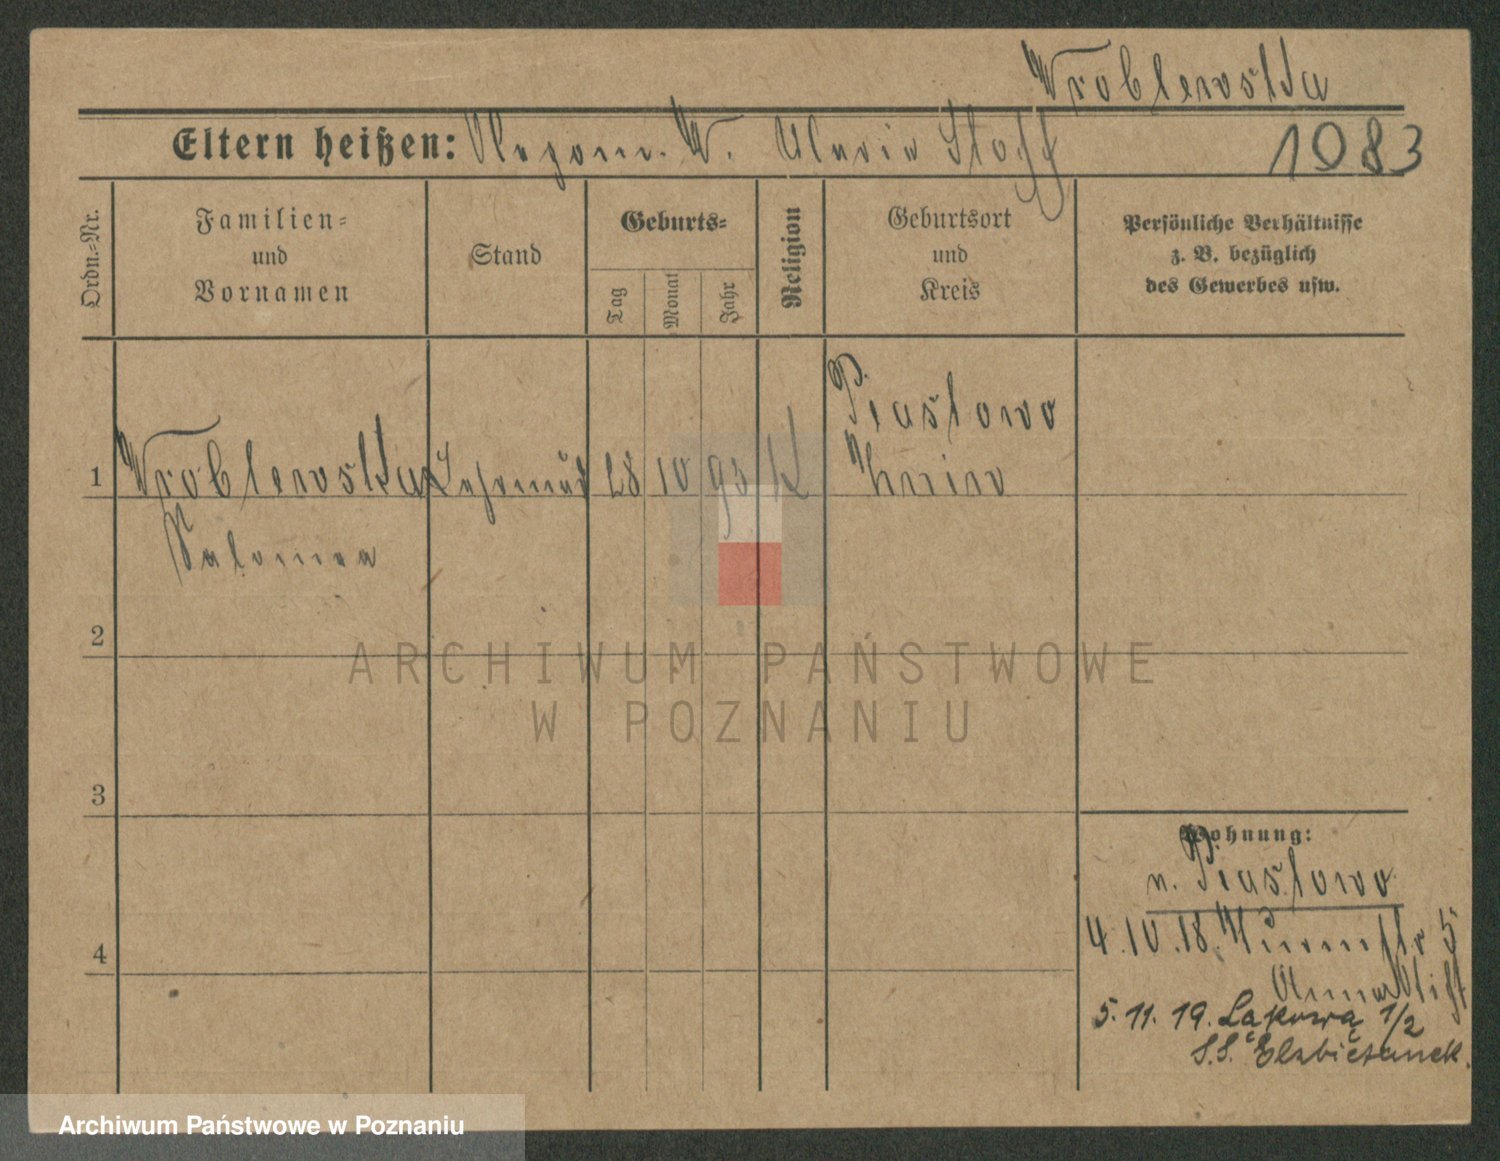 Wroblewska
Eltern heißen: W. Maria Stoff 1083
Ordn.-Nr.
Familien-
und
Vornamen
Stand
Geburts-
Tag
Monat
Jahr
Religion
Geburtsort
und
Kreis
Persönliche Verhältnisse
z. B. bezüglich
des Gewerbes usw.
Piastowo
1 Wroblewska 28 10 93 K Znin
Salomea
2
3
4
Wohnung:
n. Piastowo
4.10.18. 5
5.11.19. Łąkowa 1/2
S.S. Elżbietanek.
ARCHIWUM PAŃSTWOWE
W POZNANIU
Archiwum Państwowe w Poznaniu